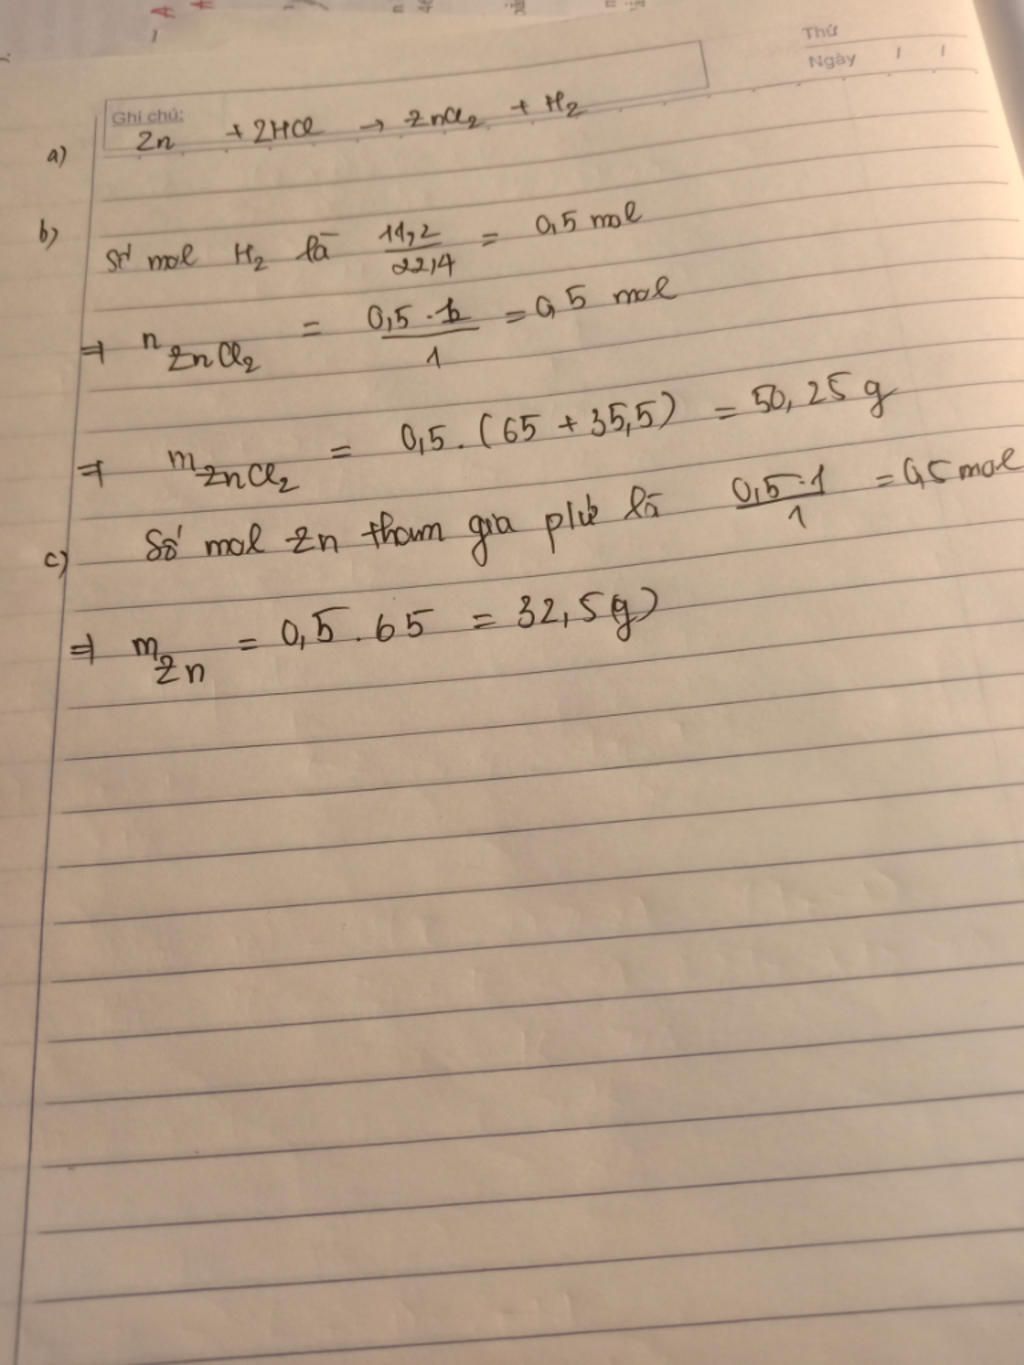 Thứ
Ngày / /
Ghi chú:
a) Zn + 2HCl → ZnCl2 + H2
b) Số mol H2 là 11,2/22,4 = 0,5 mol
⇒ nZnCl2 = 0,5 . 1/1 = 0,5 mol
⇒ mZnCl2 = 0,5 . (65 + 35,5) = 50,25 g
c) Số mol Zn tham gia p/ứ là 0,5 . 1/1 = 0,5 mol
⇒ mZn = 0,5 . 65 = 32,5 (g)